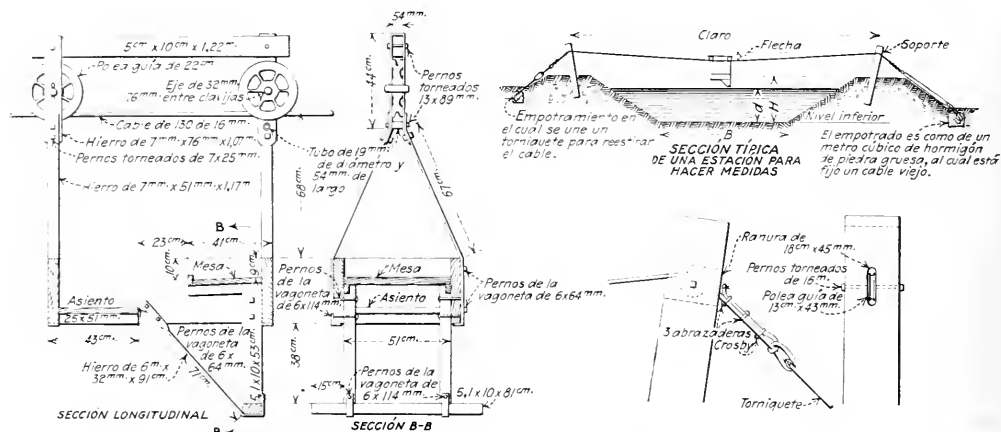 5cm x 10cm x 1.22m
Polea guía de 22cm
Eje de 32mm
76mm entre clavijas
Cable de 130 de 16mm
Hierro de 7mm x 76mm x 1,07m
Pernos torneados de 7x25mm
Hierro de 7mm x 51mm x 1.17m
23cm
41cm
B
10cm
Mesa
9cm
Asiento
25x51mm
43cm
Pernos de la
vagoneta
de 6x
64mm
Hierro de 6mm x
32mm x 91cm
71cm
5.1x10x53cm
SECCIÓN LONGITUDINAL
B
54mm
44cm
Pernos
torneados
13x89mm
Tubo de 19mm
de diámetro y
54mm de
largo
68cm
67cm
Pernos
de la
vagoneta
de 6x114mm
Mesa
Asiento
Pernos de la
vagoneta de 6x64mm
51cm
38cm
15cm
Pernos de la
vagoneta de
6x114mm
5.1x10x81cm
SECCIÓN B-B
Claro
Flecha
Soporte
A
d
H
B
Nivel inferior
Empotramiento en
el cual se une un
torniquete para reestirar
el cable.
SECCIÓN TÍPICA
DE UNA ESTACIÓN PARA
HACER MEDIDAS
El empotrado es como de un
metro cúbico de hormigón
de piedra gruesa, al cual está
fijo un cable viejo.
Ranura de
18cm x 45mm
Pernos torneados
de 16mm
Polea guía de
13cm x 43mm
3 abrazaderas
Crosby
Torniquete